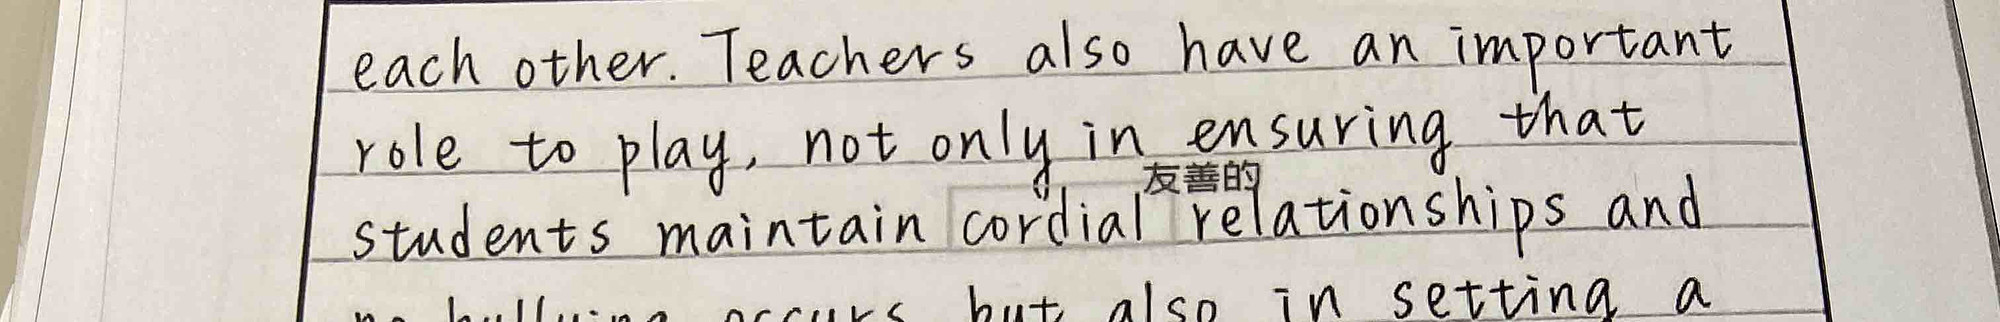 each other. Teachers also have an important
role to play, not only in ensuring that
友善的
students maintain cordial relationships and
no bullying occurs but also in setting a